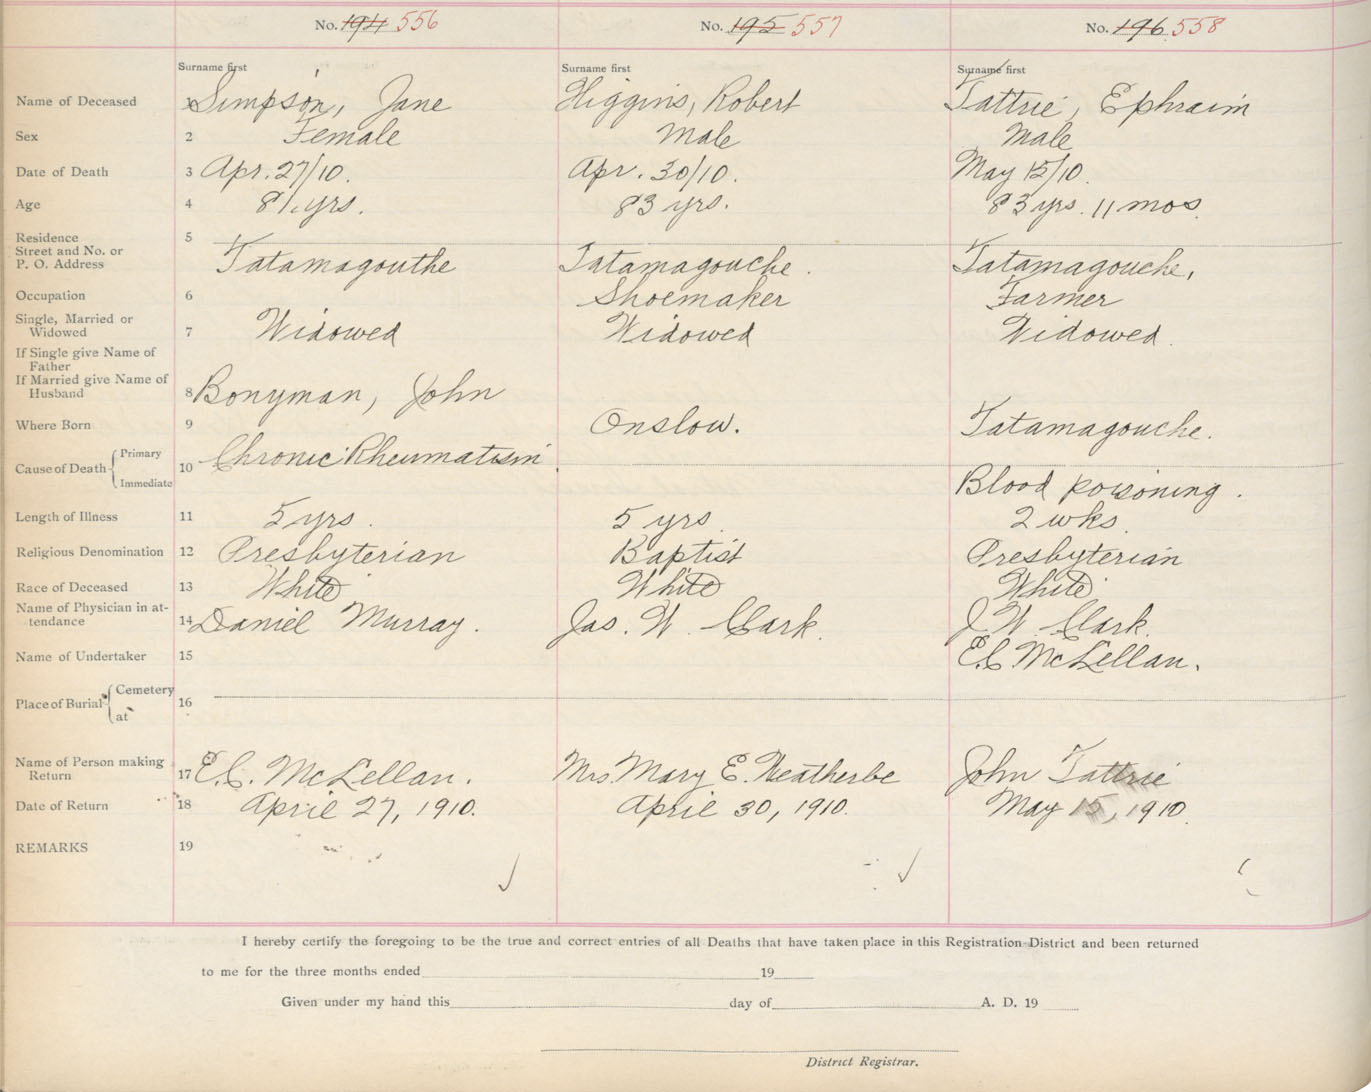 No. 194 556 No. 195 557 No. 196 558
Surname first Surname first Surname first
Name of Deceased 1 Simpson, Jane Higgins, Robert Tattrie, Ephraim
Sex 2 Female Male Male
Date of Death 3 Apr. 27/10. Apr. 30/10. May 15/10.
Age 4 81 yrs. 83 yrs. 83 yrs. 11 mos
Residence 5
Street and No. or
P. O. Address Tatamagouthe Tatamagouche. Tatamagouche,
Occupation 6 Shoemaker Farmer
Single, Married or
Widowed 7 Widowed Widowed Widowed.
If Single give Name of
Father
If Married give Name of
Husband 8 Bonyman, John
Where Born 9 Onslow. Tatamagouche.
Cause of Death { Primary 10 Chronic Rheumatism
Immediate Blood poisoning.
Length of Illness 11 5 yrs. 5 yrs 2 wks.
Religious Denomination 12 Presbyterian Baptist Presbyterian
Race of Deceased 13 White White White
Name of Physician in at-
tendance 14 Daniel Murray. Jas. W. Clark. J. W. Clark.
Name of Undertaker 15 E.C. McLellan.
Place of Burial { Cemetery 16
at
Name of Person making
Return 17 E.C. McLellan. Mrs Mary E. Weatherbe John Tattrie
Date of Return 18 April 27, 1910. April 30, 1910. May 15, 1910.
REMARKS 19
I hereby certify the foregoing to be the true and correct entries of all Deaths that have taken place in this Registration District and been returned
to me for the three months ended 19
Given under my hand this day of A. D. 19
District Registrar.